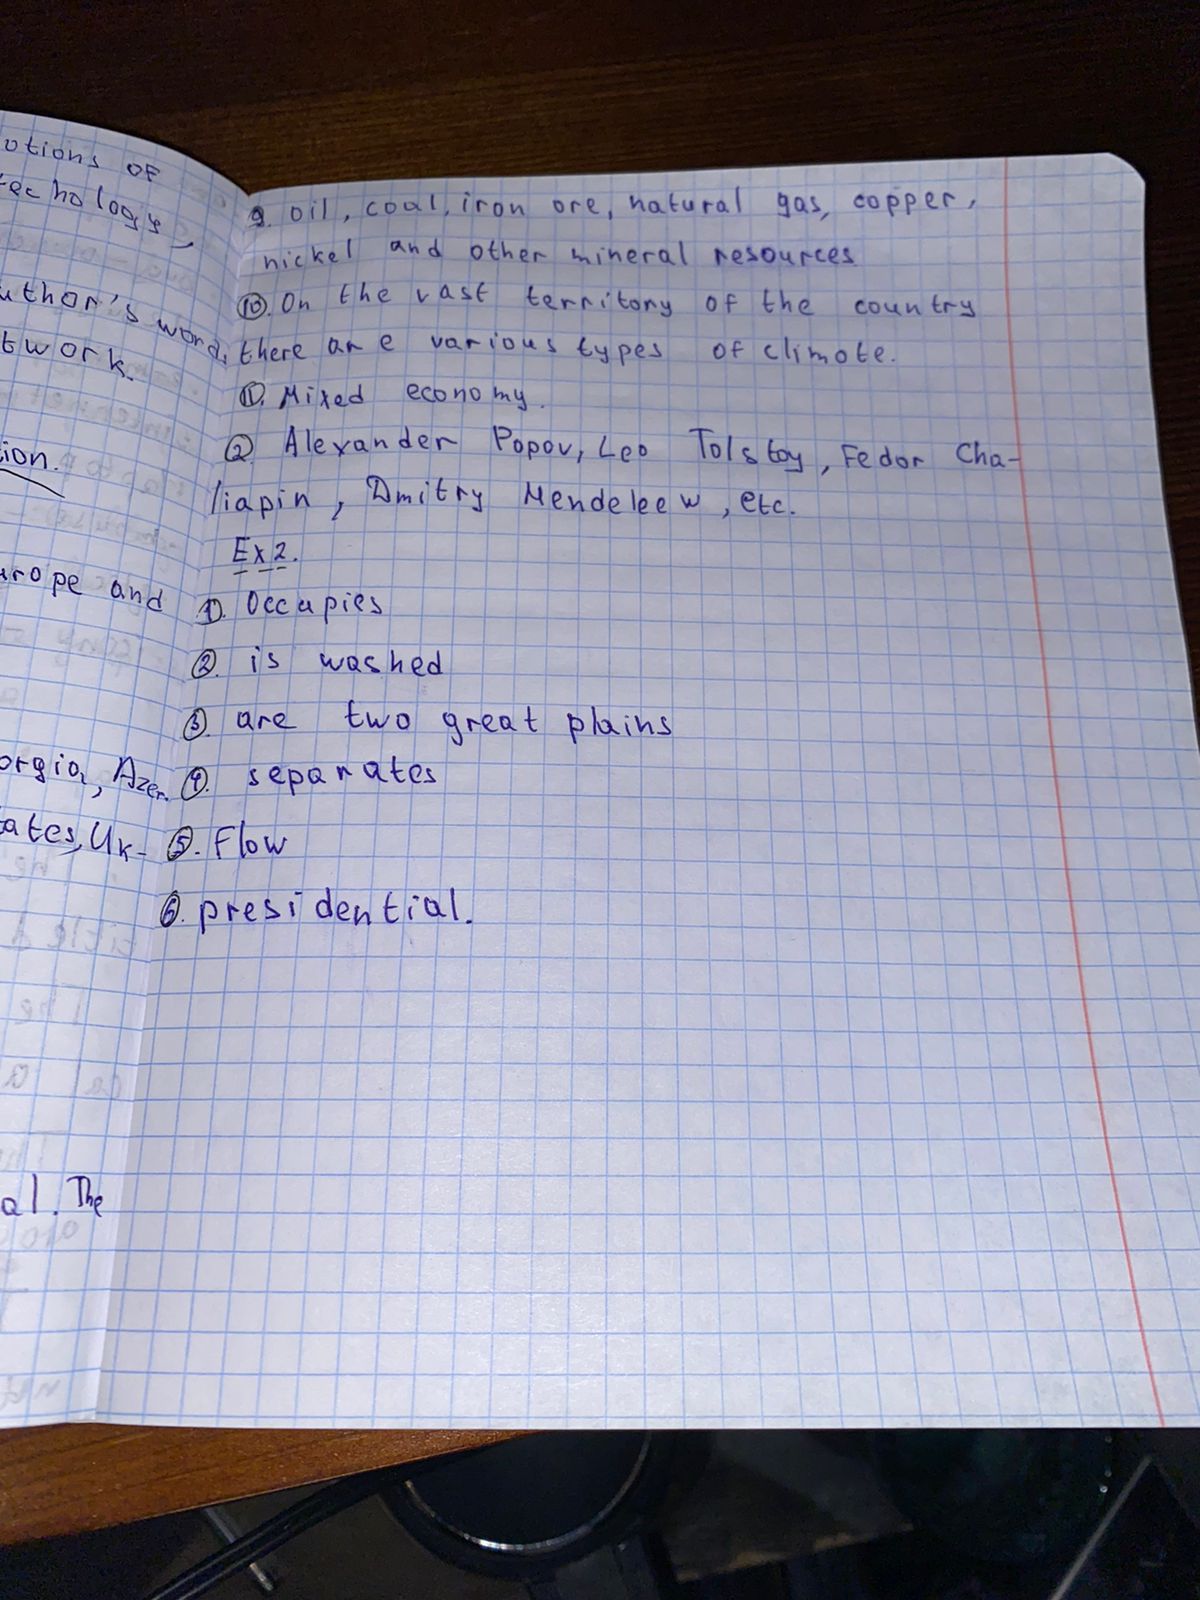 otions of
techology,
uthor's word,
twork.
ion.
urope and
orgia, Azer.
ates, Uk-
al. The
9. oil, coal, iron ore, natural gas, copper,
nickel and other mineral resources
10. On the vast territory of the country
there are various types of climote.
11. Mixed economy.
2. Alexander Popov, Leo Tolstoy, Fedor Cha-
liapin, Dmitry Mendeleew, etc.
Ex 2.
1. Occupies
2. is washed
3. are two great plains
4. separates
5. Flow
6. presidential.